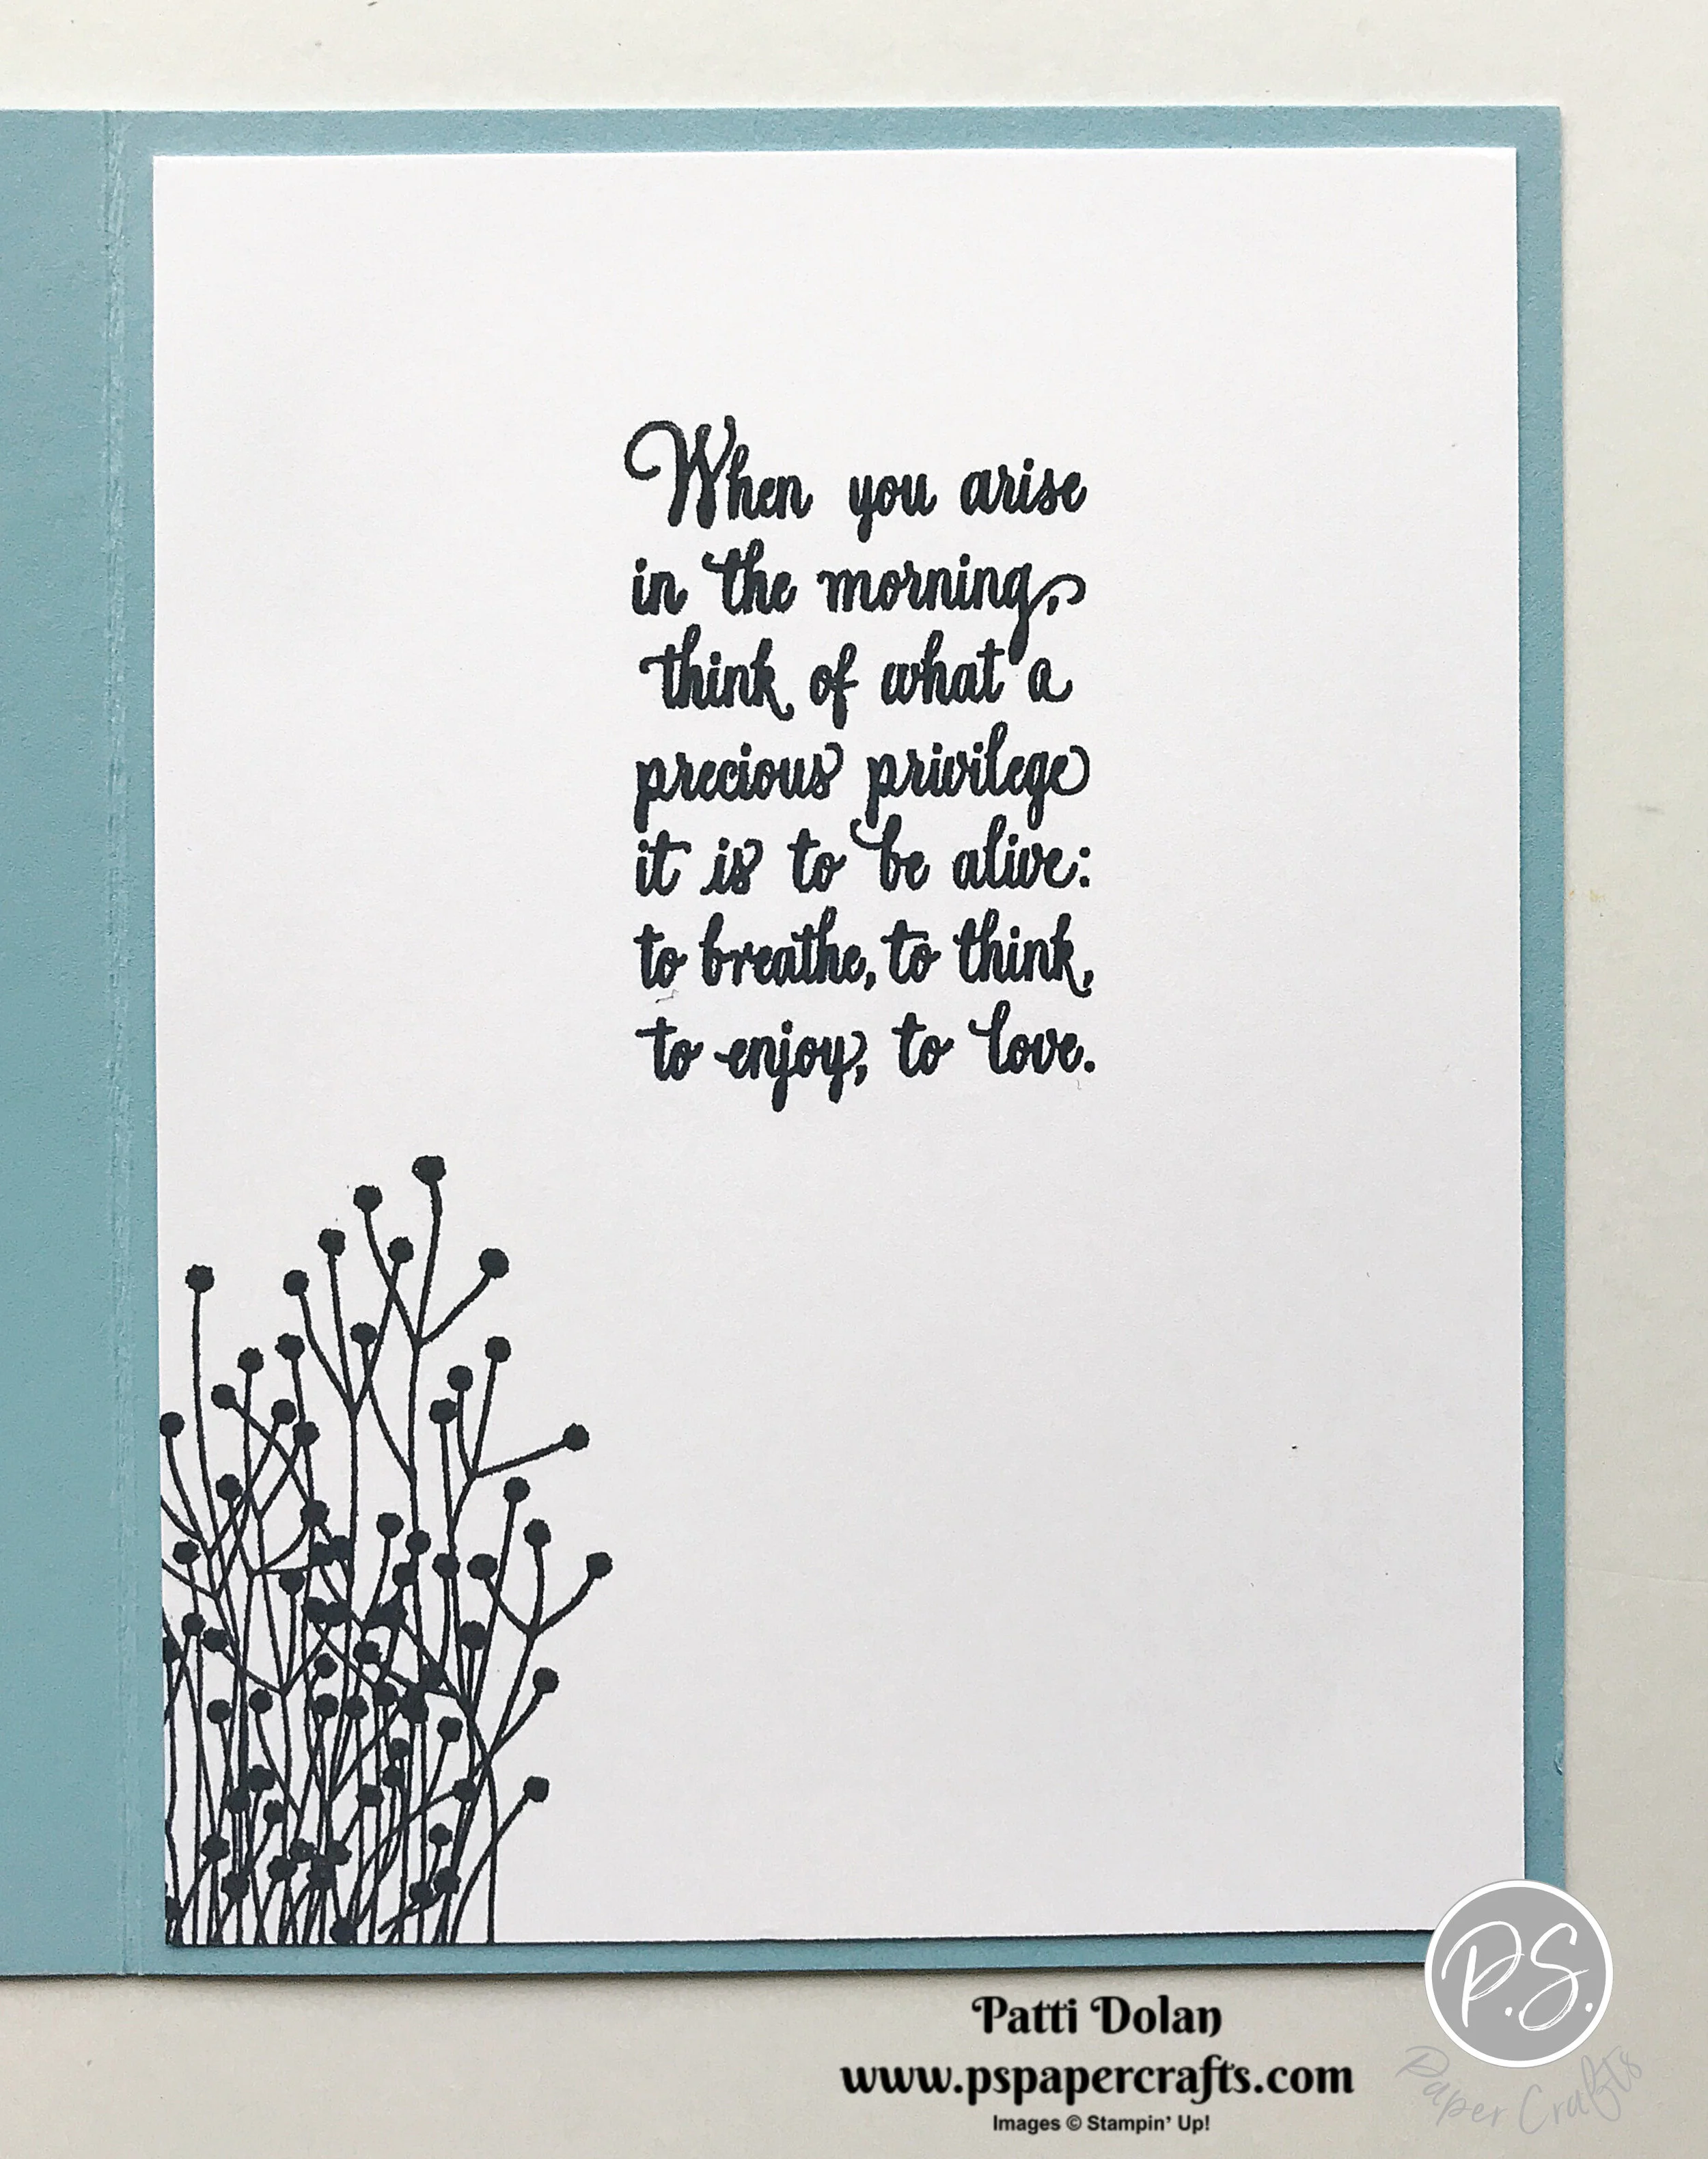 When you arise
in the morning,
think of what a
precious privilege
it is to be alive:
to breathe, to think,
to enjoy, to love.
P.S.
Paper Crafts
Patti Dolan
www.pspapercrafts.com
Images © Stampin' Up!